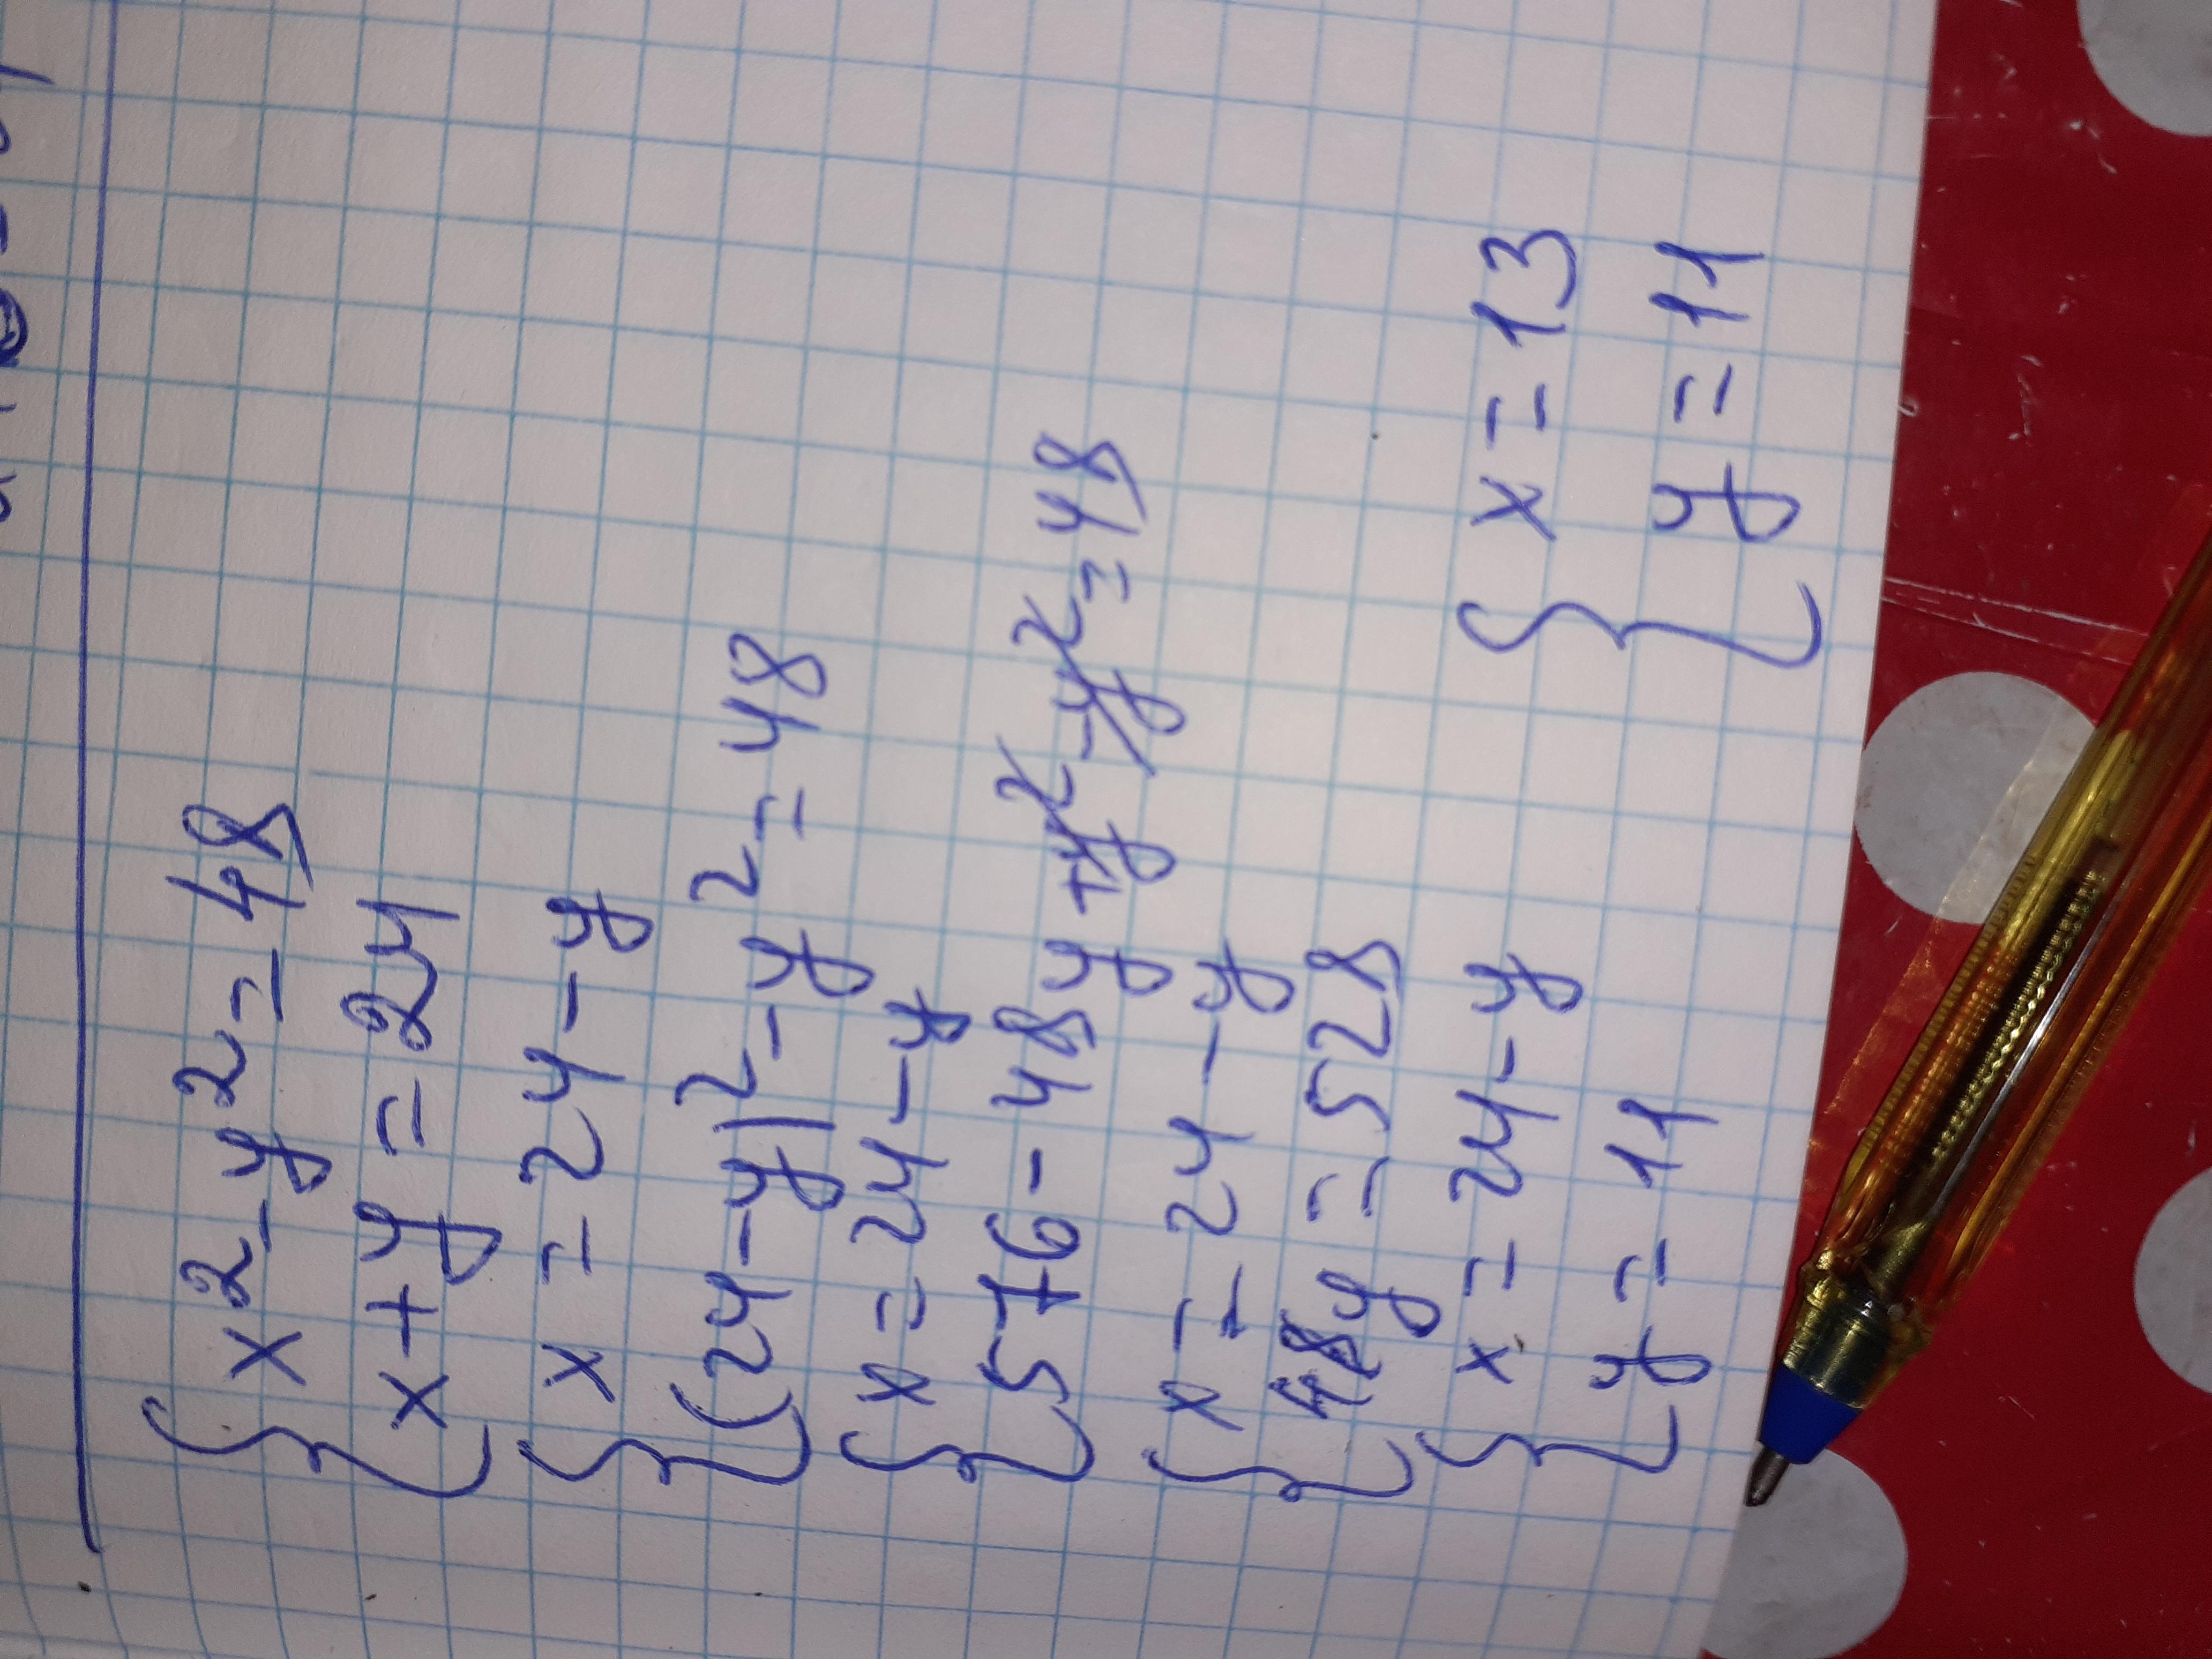 { x² - y² = 48
x + y = 24
{ x = 24 - y
(24 - y)² - y² = 48
{ x = 24 - y
576 - 48y + y² - y² = 48
{ x = 24 - y
48y = 528
{ x = 24 - y
y = 11
{ x = 13
y = 11